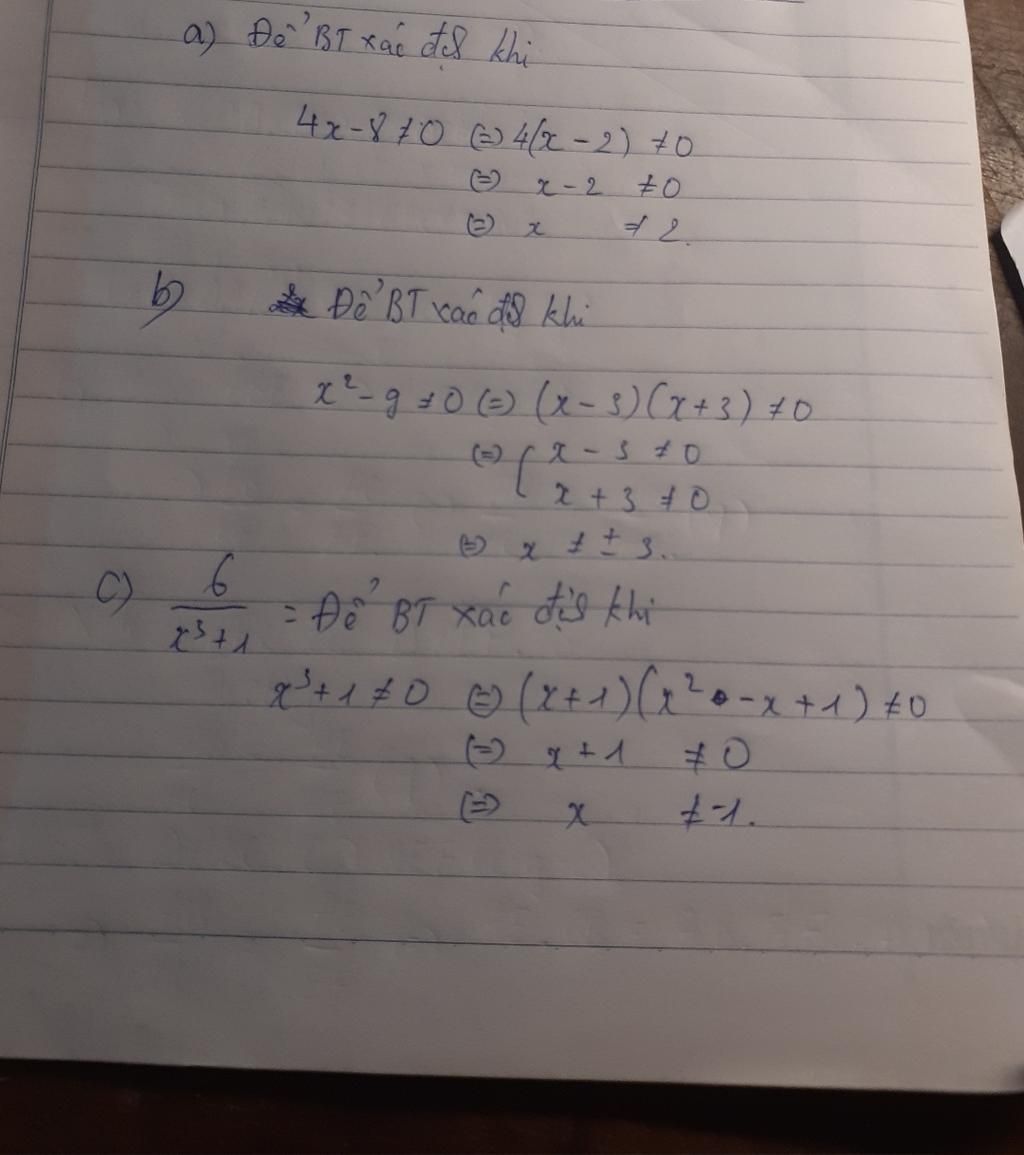 a) Để BT xác địn khi
4x-8≠0 (=) 4(x-2) ≠0
(=) x-2 ≠0
(=) x ≠ 2.
b) Để BT xác địn khi
x²-9≠0 (=) (x-3)(x+3) ≠0
(=) { x-3 ≠0
x+3 ≠0
(=) x ≠ ± 3.
c) 6/(x³+1) = Để BT xác địn khi
x³+1≠0 (=) (x+1)(x²-x+1) ≠0
(=) x+1 ≠0
(=) x ≠-1.